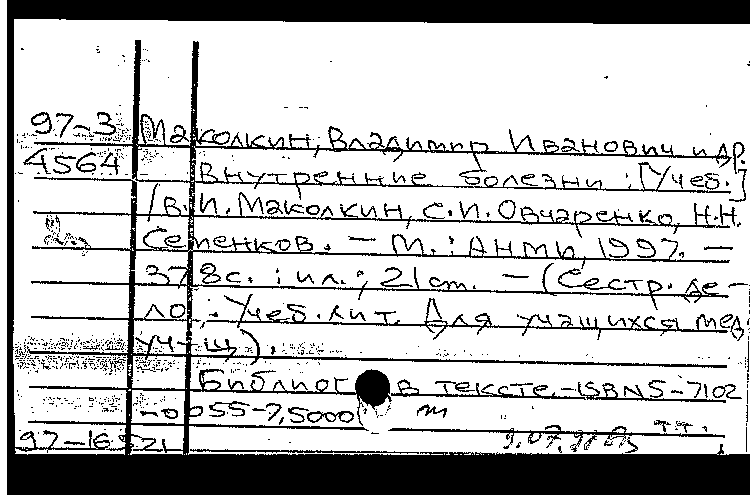 97-3 Маколкин, Владимир Иванович и др.
4564 Внутренние болезни : [Учеб.]
/ В. И. Маколкин, С. И. Овчаренко, Н. Н.
Семенков. – М. : АНМИ, 1997. –
378 с. : ил. ; 21 см. – (Сестр. де-
ло ; Учеб. лит. Для учащихся мед.
уч-щ).
Библиогр. в тексте. – ISBN 5-7102
-0055-7, 5000
97-16521 т.т.